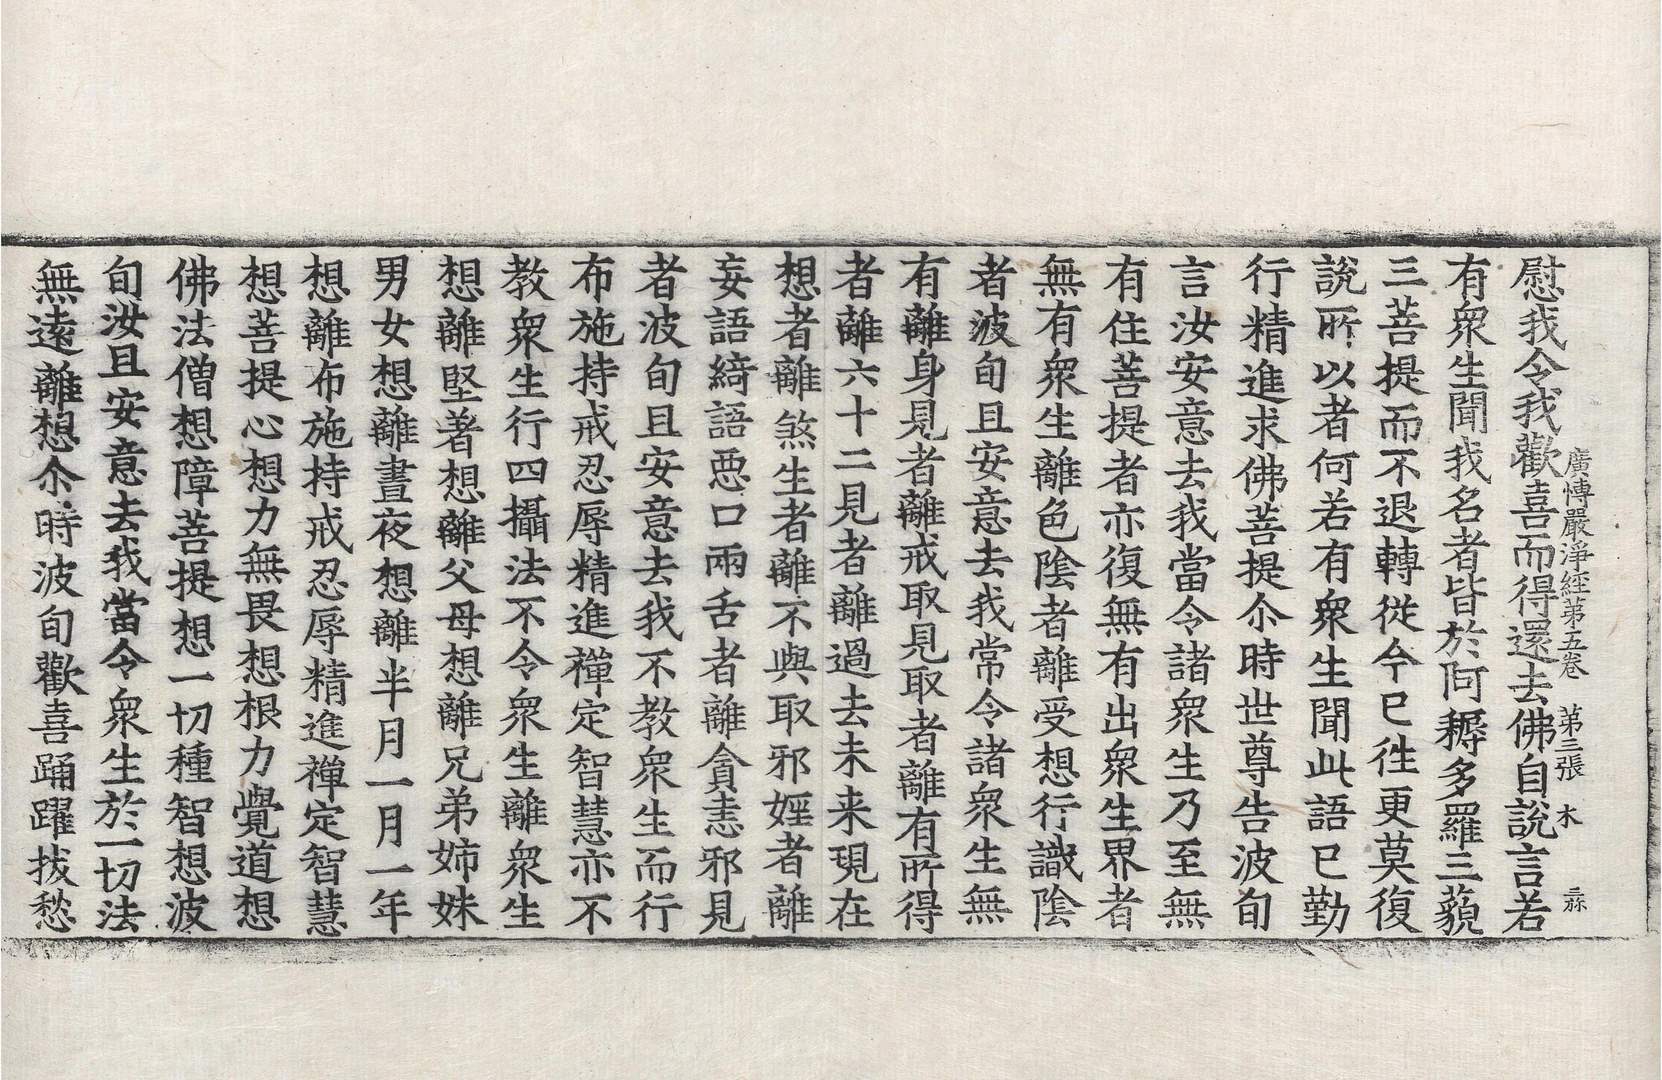 廣愽嚴淨經第五卷 第三張 木
慰我令我歡喜而得還去佛自說言若
有衆生聞我名者皆於阿耨多羅三藐
三菩提而不退轉從今已徃更莫復
說所以者何若有衆生聞此語已勤
行精進求佛菩提尒時世尊告波旬
言汝安意去我當令諸衆生乃至無
有住菩提者亦復無有出衆生界者
無有衆生離色陰者離受想行識陰
者波旬且安意去我常令諸衆生無
有離身見者離戒取見取者離有所得
者離六十二見者離過去未来現在
想者離煞生者離不與取邪婬者離
妄語綺語惡口兩舌者離貪恚邪見
者波旬且安意去我不教衆生而行
布施持戒忍辱精進禪定智慧亦不
教衆生行四攝法不令衆生離衆生
想離堅著想離父母想離兄弟姉妹
男女想離晝夜想離半月一月一年
想離布施持戒忍辱精進禪定智慧
想菩提心想力無畏想根力覺道想
佛法僧想障菩提想一切種智想波
旬汝且安意去我當令衆生於一切法
無遠離想尒時波旬歡喜踊躍拔愁